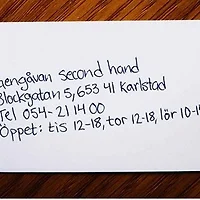 engåvan second hand
Blockgatan 5, 653 41 Karlstad
Tel 054-21 14 00
Öppet: tis 12-18, tor 12-18, lör 10-1